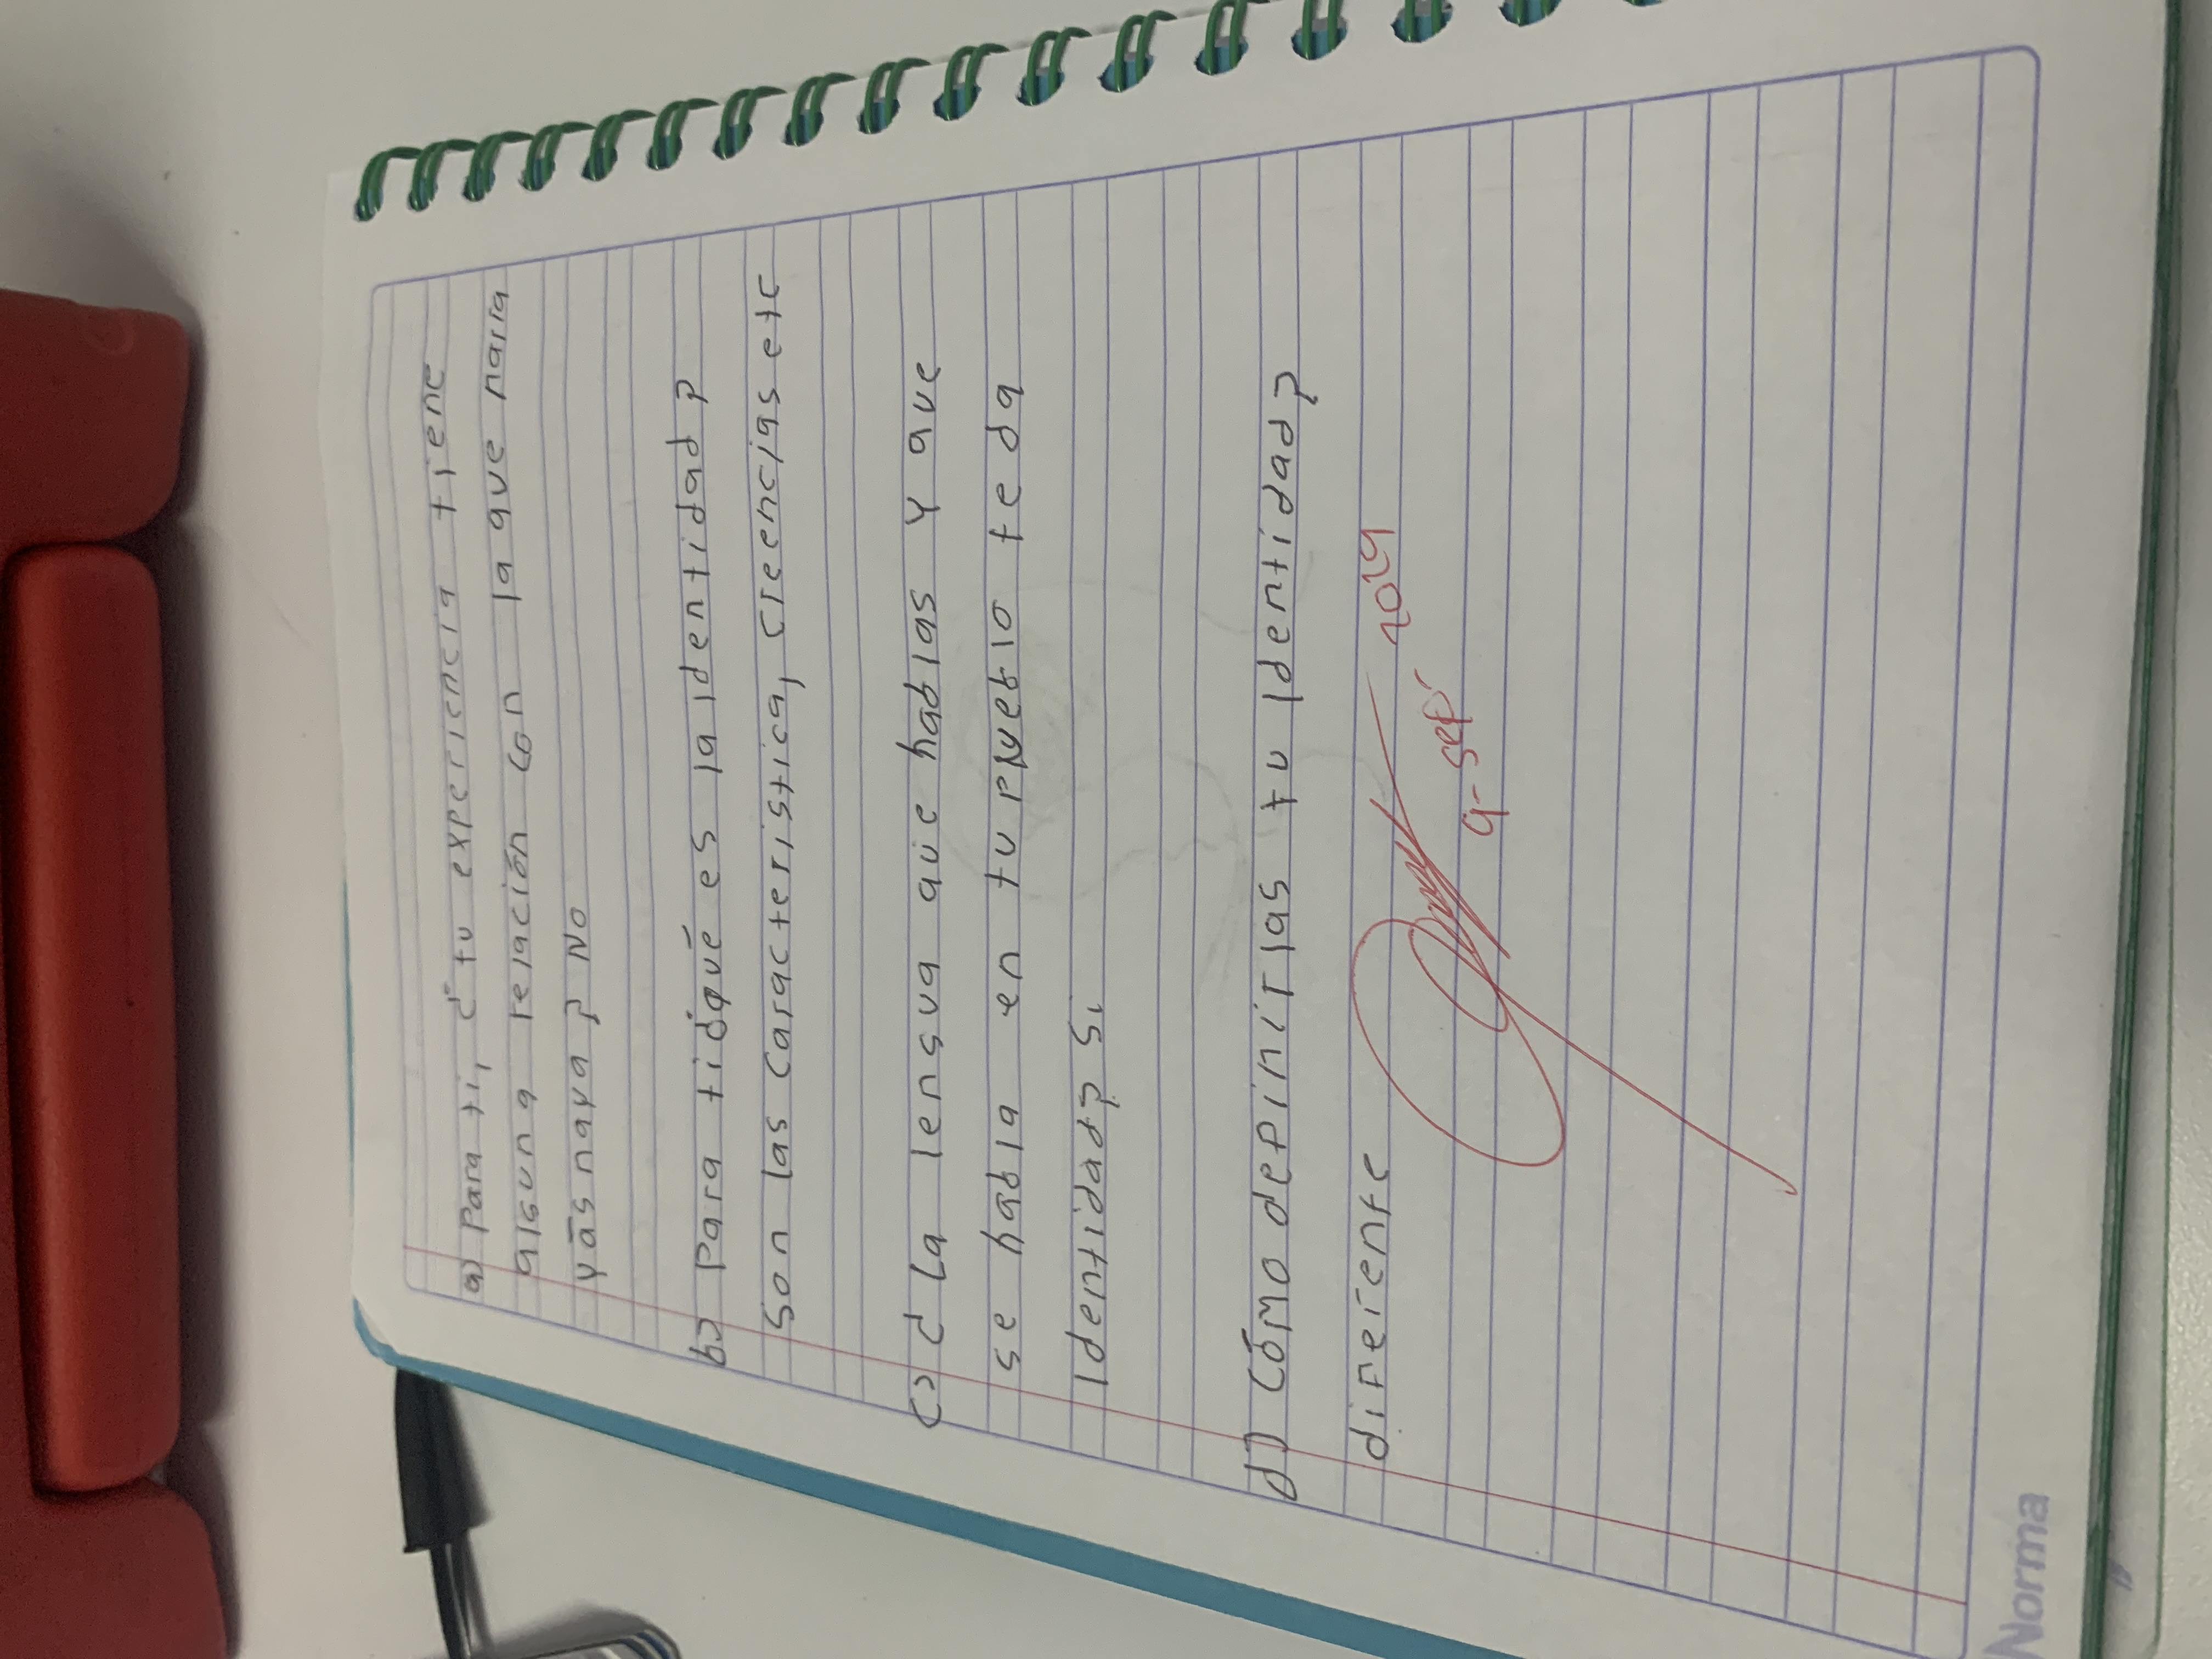 a) Para ti, ¿tu experiencia tiene
alguna relación con la que narra
yásnaya? No
b) Para ti ¿qué es la identidad?
Son las caracteristica, creencias etc
c) ¿La lengua que hablas y que
se habla en tu pueblo te da
identidad? Si
d) Cómo definirias tu identidad?
diferente
2019
9-sep
Norma